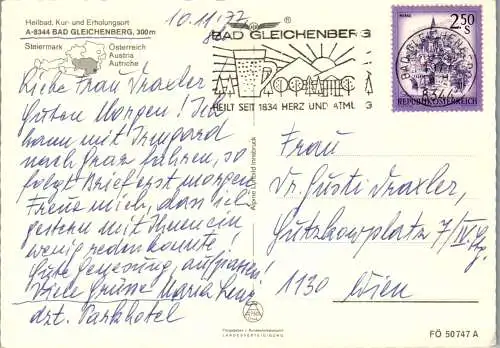 Heilbad, Kur- und Erholungsort
A-8344 BAD GLEICHENBERG, 300m
Steiermark
Österreich
Austria
Autriche
10.11.77
BAD GLEICHENBERG
HEILT SEIT 1834 HERZ UND ATMUNG
2.50
S
REPUBLIK ÖSTERREICH
8344
Liebe Frau Draxler
Guten Morgen! Ich
kann mit Irmgard
nach Graz fahren, so
folgt Brief erst morgen
Freue mich, dass ich
gestern mit Ihnen ein
wenig reden konnte,
Gute Genesung, aufpassen!
Viele Grüsse Maria
dzt. Parkhotel
Alpine Luftbild Innsbruck
Frau
Dr. Gusti Draxler,
Gutzkowplatz 7/IV. Stg.
1130 Wien
Freigegeben v. Bundesministerium f.
LANDESVERTEIDIGUNG
FÖ 50747 A